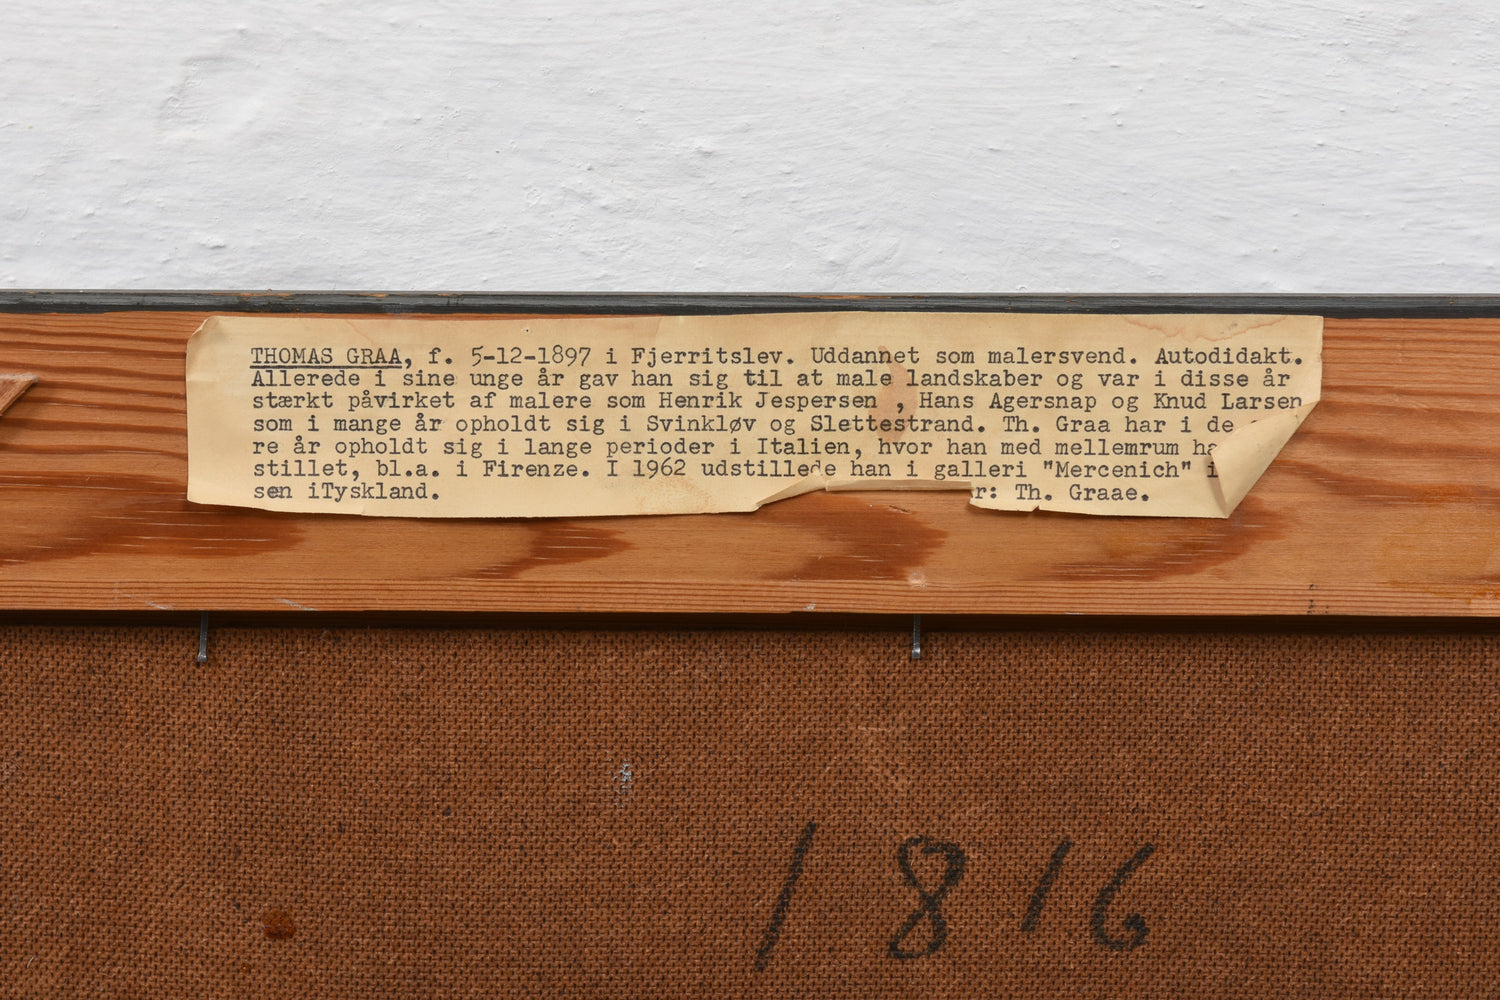 THOMAS GRAA, f. 5-12-1897 i Fjerritslev. Uddannet som malersvend. Autodidakt.
Allerede i sine unge år gav han sig til at male landskaber og var i disse år
stærkt påvirket af malere som Henrik Jespersen , Hans Agersnap og Knud Larsen
som i mange år opholdt sig i Svinkløv og Slettestrand. Th. Graa har i de
re år opholdt sig i lange perioder i Italien, hvor han med mellemrum ha
stillet, bl.a. i Firenze. I 1962 udstillede han i galleri "Mercenich" i
sen iTyskland. r: Th. Graae.
1816